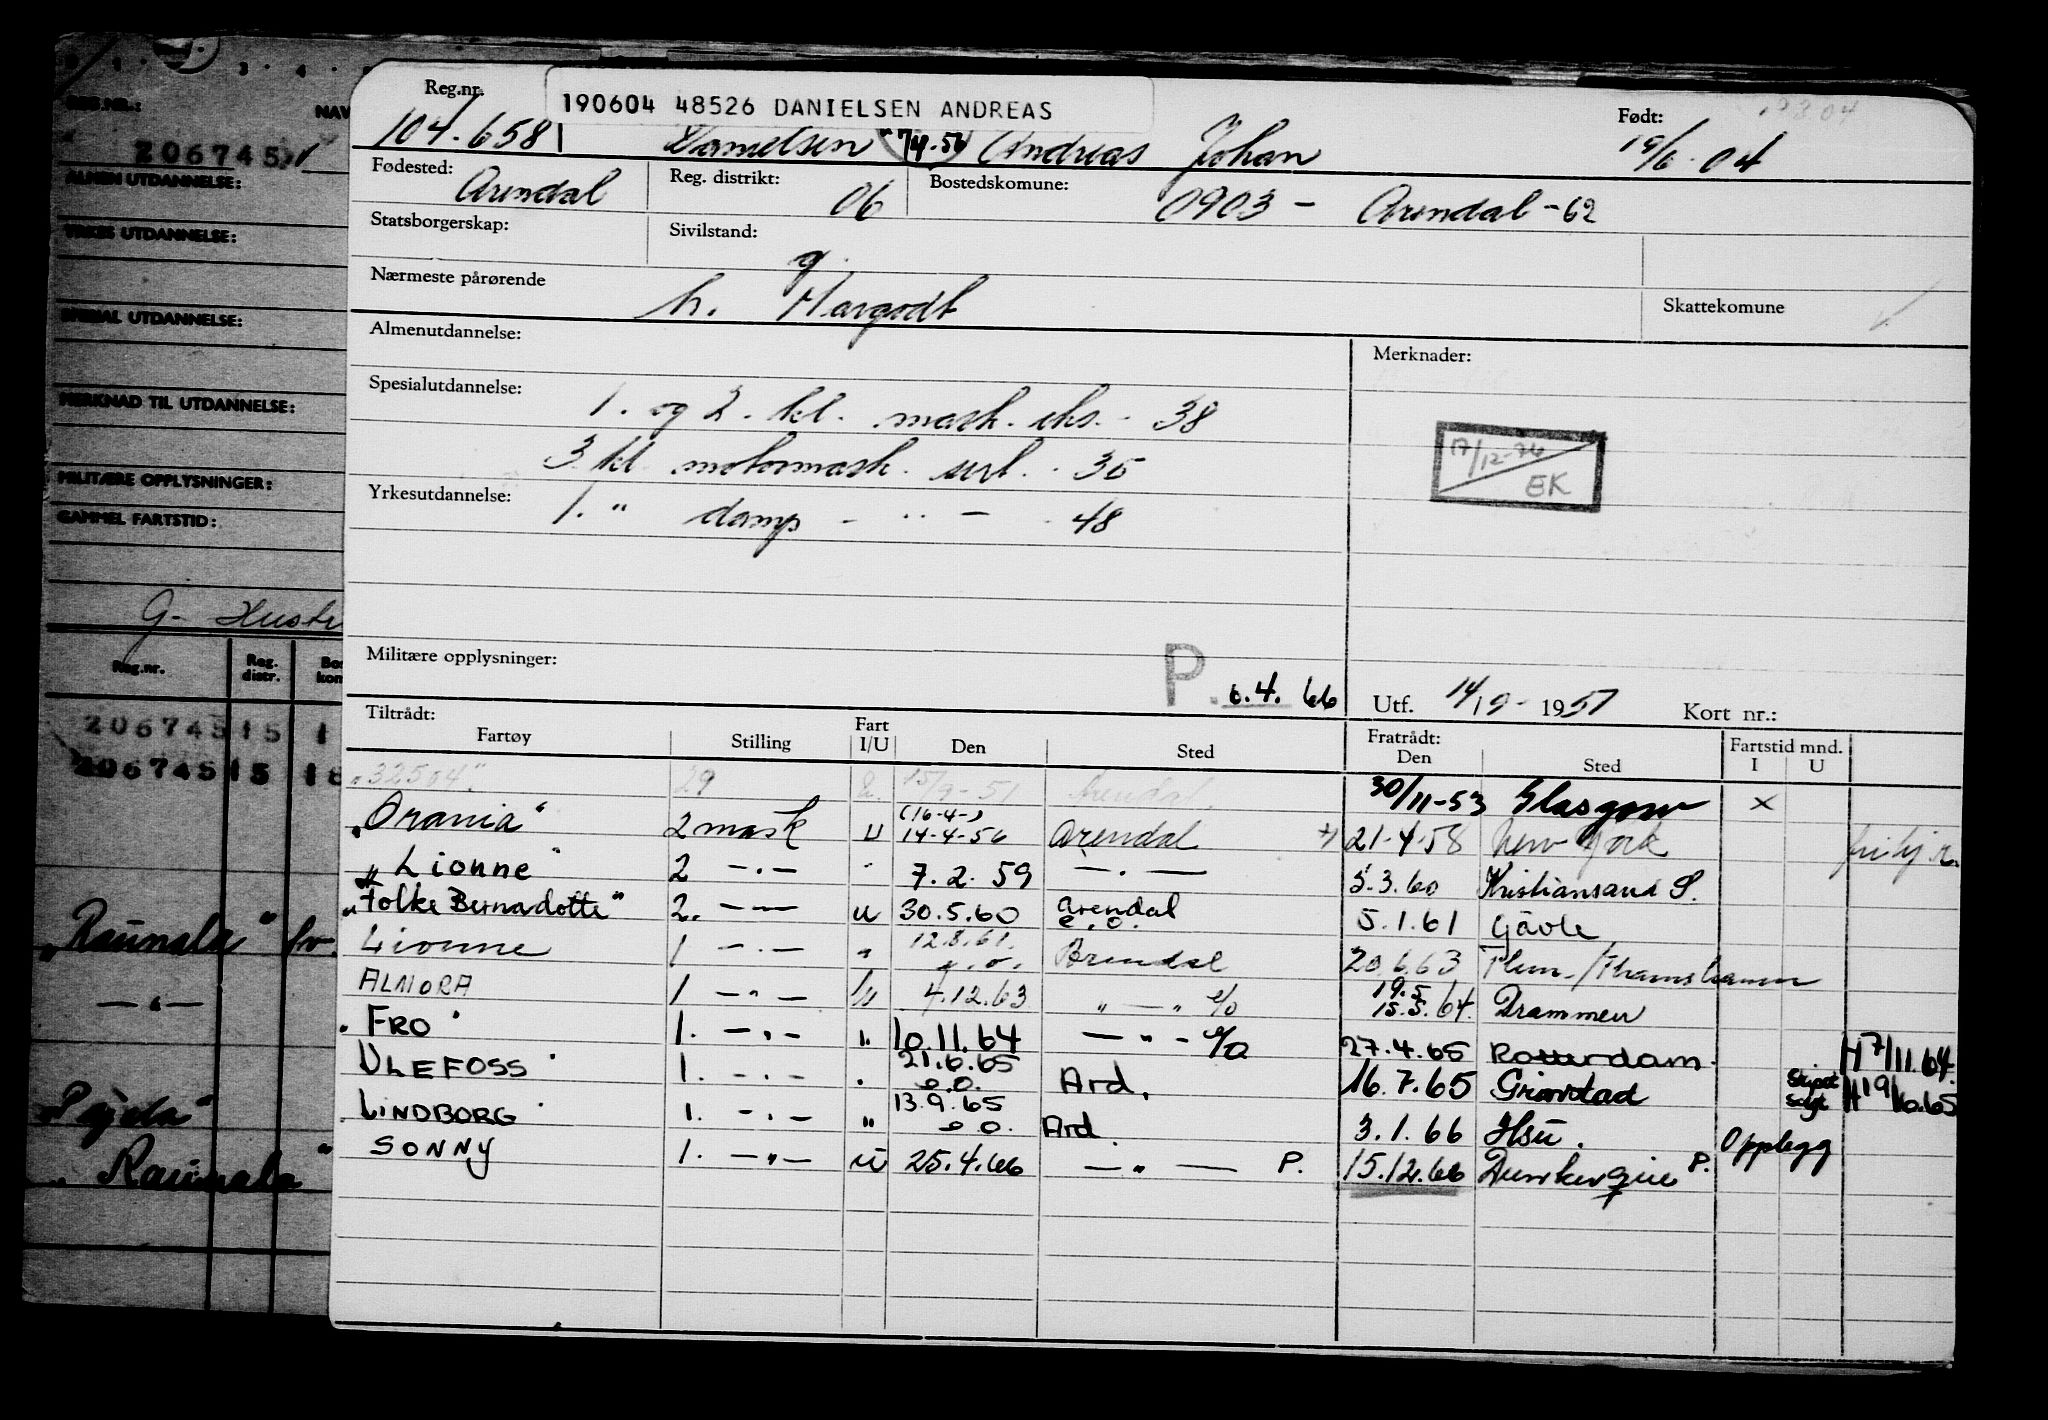 REG.NR.: NAV
206745
ALMEN UTDANNELSE:
YRKES UTDANNELSE:
SPESIAL UTDANNELSE:
MERKNAD TIL UTDANNELSE:
MILITÆRE OPPLYSNINGER:
GAMMEL FARTSTID:
G- Hustr
Reg.nr. Reg. distr. Bos kon
206745 15 1
206745 15 18
„Raunala“
— " —
„Pajala“
„Raunala“
Reg.nr. 190604 48526 DANIELSEN ANDREAS Født:
104.658 Danielsen 7/4-56 Andreas Johan 19/6-04
Fødested: Arendal Reg. distrikt: 06 Bostedskomune: 0903 - Arendal -62
Statsborgerskap: Sivilstand: g.
Nærmeste pårørende h. Margodt Skattekomune
Almenutdannelse: Merknader:
Spesialutdannelse: 1. og 2. kl. mask. eks. - 38
3 kl. motormask. sert. - 35
Yrkesutdannelse: 1. " damp - " - - 48
EK
Militære opplysninger: P. 6.4.66 Utf. 14/9- 1951 Kort nr.:
Tiltrådt: Fartøy Stilling Fart I/U Den Sted Fratrådt: Den Sted Fartstid mnd. I U
„32504“ 29 15/9-51 Arendal 30/11-53 Glasgow x
„Orania“ 2 mask U (16-4-) 14-4-56 Arendal 21-4-58 New York
„Lionne“ 2 — . — " 7.2.59 — . — 5.3.60 Kristiansand S.
„Folke Bernadotte“ 2. — — u 30.5.60 Arendal e.o. 5.1.61 Gävle
Lionne 1 — . — " 12.8.61. e.o. Arendal 20.6.63 Thamshamn
ALMORA 1 — " — U 4.12.63 " — " e/o 19.5 15.5.64. Drammen
„FRO“ 1. — " — " 10.11.64 — " — e/o 27.4.65 Rotterdam. H 7/11.64.
ULEFOSS“ 1. — . — " 21.6.65 e.o. Ard. 16.7.65 Grimstad Skipet solgt H 19/6.65
LINDBORG“ 1. — . — " 13.9.65 e.o. Ard. 3.1.66 Hsu. Opplegg
SONNY 1. — " — U 25.4.66 — " — P. 15.12.66 Dunkerque P.